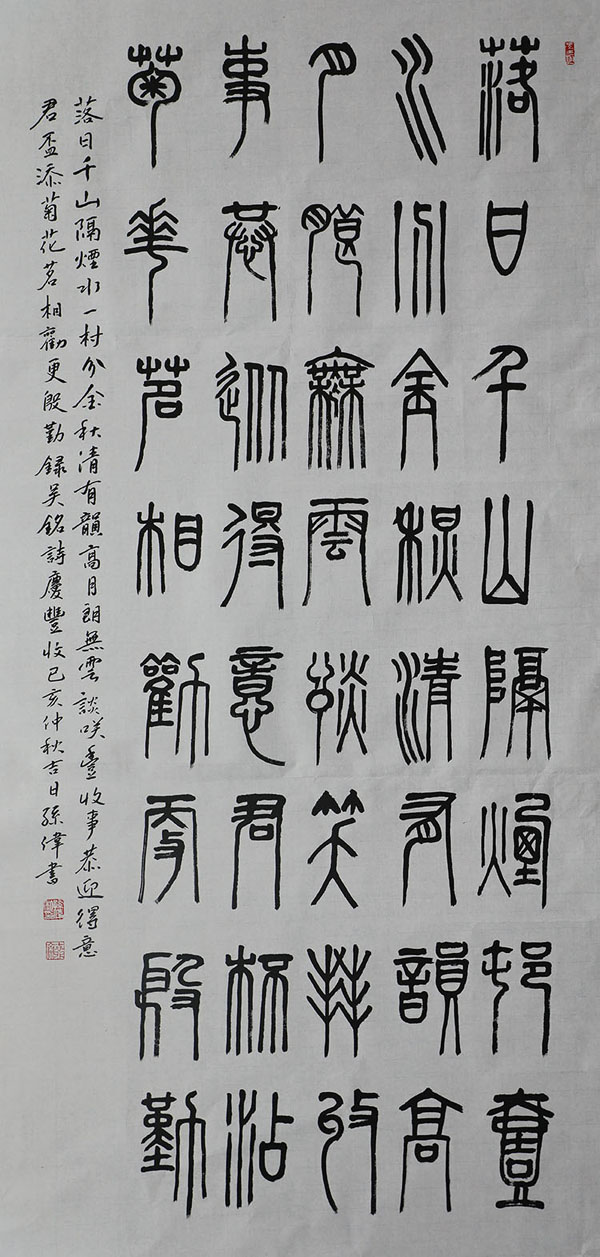 落日千山隔煙邨壹
水分金秋清有韻高
月朗無雲談笑豐收
事恭迎得意君杯添
菊華茗相勸更殷勤
落日千山隔煙水一村分金秋清有韻高月朗無雲談咲豐收事恭迎得意
君盃添菊花茗相勸更殷勤錄吴銘詩慶豐收己亥仲秋吉日孫偉書